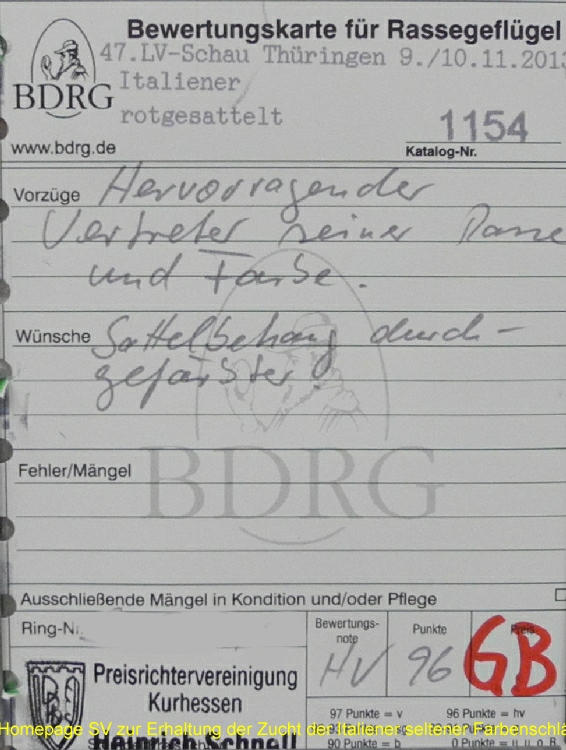 Bewertungskarte für Rassegeflügel
47.LV-Schau Thüringen 9./10.11.2013
Italiener
rotgesattelt
BDRG
www.bdrg.de
1154
Katalog-Nr.
Vorzüge Hervorragender
Vertreter seiner Rasse
und Farbe.
Wünsche Sattelbehang durch-
gefärbter!
BDRG
Fehler/Mängel
Ausschließende Mängel in Kondition und/oder Pflege
Ring-Nr.
Bewertungs-
note
Punkte
Preis
HV 96 GB
Preisrichtervereinigung
Kurhessen
97 Punkte = v 96 Punkte = hv
Homepage SV zur Erhaltung der Zucht der Italiener seltener Farbenschlä
Heinrich Schnell
90 Punkte = b